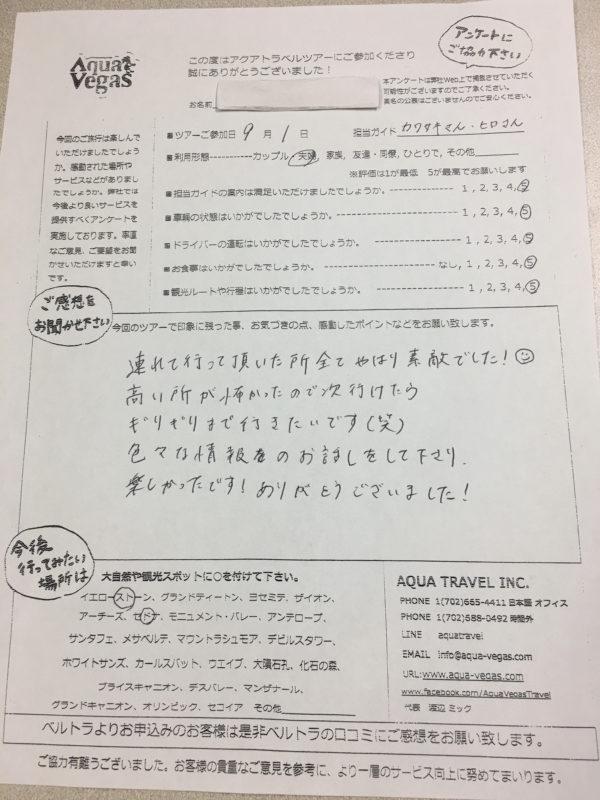 Aqua
Vegas
この度はアクアトラベルツアーにご参加くださり
誠にありがとうございました！
アンケートに
ご協力下さい
本アンケートは弊社Web上で掲載させていただく
可能性がございますのでご了承ください。
実名の公表はございませんのでご安心ください。
お名前
■ツアーご参加日 9 月 1 日 担当ガイド カワサキさん・ヒロさん
■利用形態-----------カップル・夫婦, 家族, 友達・同僚, ひとりで, その他
※評価は1が最低 5が最高でお願いします
■担当ガイドの案内は満足いただけましたでしょうか。 1 , 2, 3, 4, 5
■車輌の状態はいかがでしたでしょうか。 1 , 2, 3, 4, 5
■ドライバーの運転はいかがでしたでしょうか。 1 , 2, 3, 4, 5
■お食事はいかがでしたでしょうか。 なし, 1 , 2, 3, 4, 5
■観光ルートや行程はいかがでしたでしょうか。 1 , 2, 3, 4, 5
今回のご旅行は楽しんで
いただけましたでしょう
か。感動された場所や
サービスなどがありまし
たでしょうか。弊社では
今後より良いサービスを
提供すべくアンケートを
実施しております。率直
なご意見、ご要望をお聞
かせいただけますと幸い
です。
ご感想を
お聞かせ下さい
今回のツアーで印象に残った事、お気づきの点、感動したポイントなどをお願い致します。
連れて行って頂いた所全てやはり素敵でした！
高い所が怖かったので次行けたら
ギリギリまで行きたいです(笑)
色々な情報をのお話しをして下さり、
楽しかったです！ありがとうございました！
今後
行ってみたい
場所は
大自然や観光スポットに○を付けて下さい。
イエローストーン、グランドティートン、ヨセミテ、ザイオン、
アーチーズ、セドナ、モニュメント・バレー、アンテロープ、
サンタフェ、メサベルデ、マウントラシュモア、デビルスタワー、
ホワイトサンズ、カールスバット、ウエイブ、大隕石孔、化石の森、
ブライスキャニオン、デスバレー、マンザナール、
グランドキャニオン、オリンピック、セコイア その他
AQUA TRAVEL INC.
PHONE 1(702)665-4411 日本語 オフィス
PHONE 1(702)688-0492 時間外
LINE aquatravel
EMAIL info@aqua-vegas.com
URL:www.aqua-vegas.com
www.facebook.com/AquaVegasTravel
代表 渡辺 ミック
ベルトラよりお申込みのお客様は是非ベルトラの口コミにご感想をお願い致します。
ご協力有難うございました。お客様の貴重なご意見を参考に、より一層のサービス向上に努めてまいります。